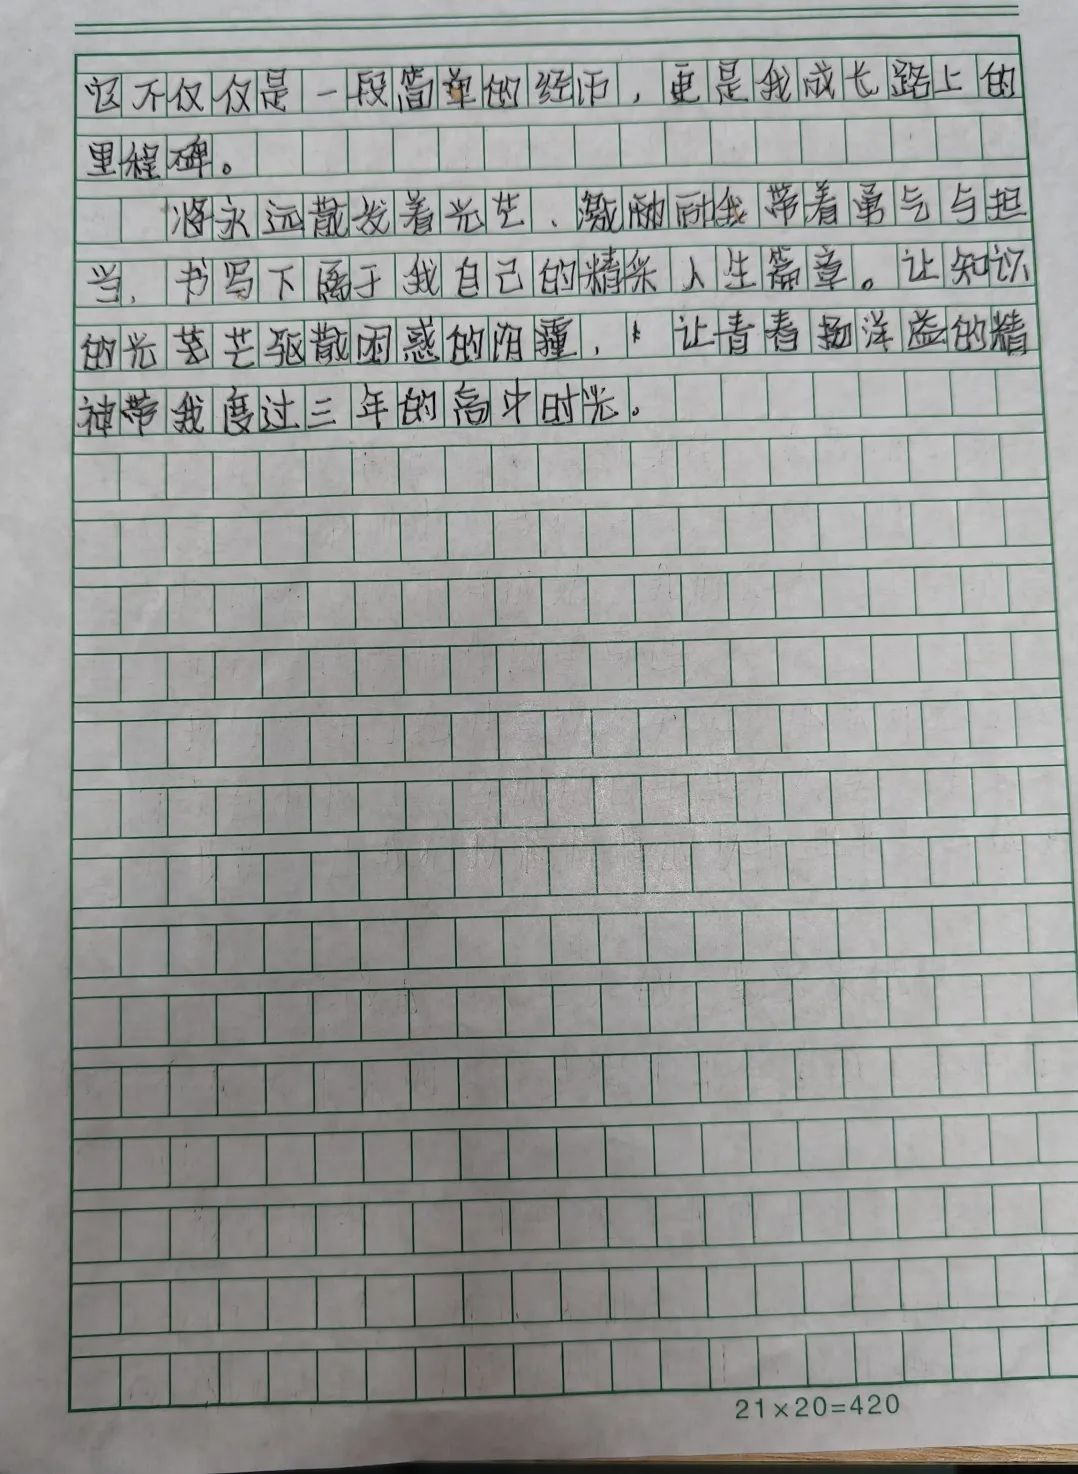 它不仅仅是一段简单的经历，更是我成长路上的
里程碑。
将永远散发着光芒、激励我带着勇气与担
当，书写下属于我自己的精采人生篇章。让知识
的光芒芒驱散困惑的阴霾，让青春扬洋益的精
神带我度过三年的高中时光。
21×20=420